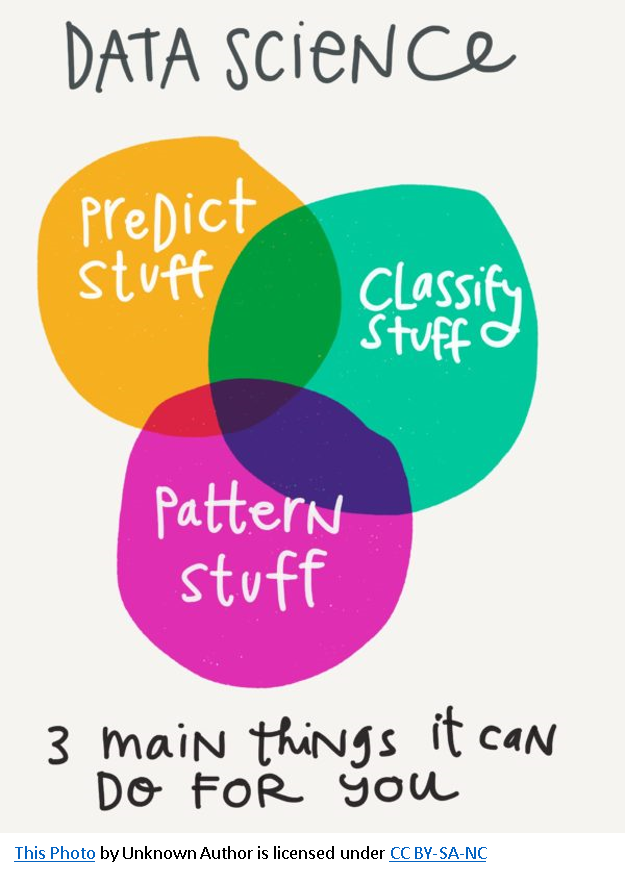 DATA SCIENCE
PREDICT
STUFF
CLASSIFY
STUFF
PATTERN
STUFF
3 MAIN THINGS IT CAN
DO FOR YOU
This Photo by Unknown Author is licensed under CC BY-SA-NC